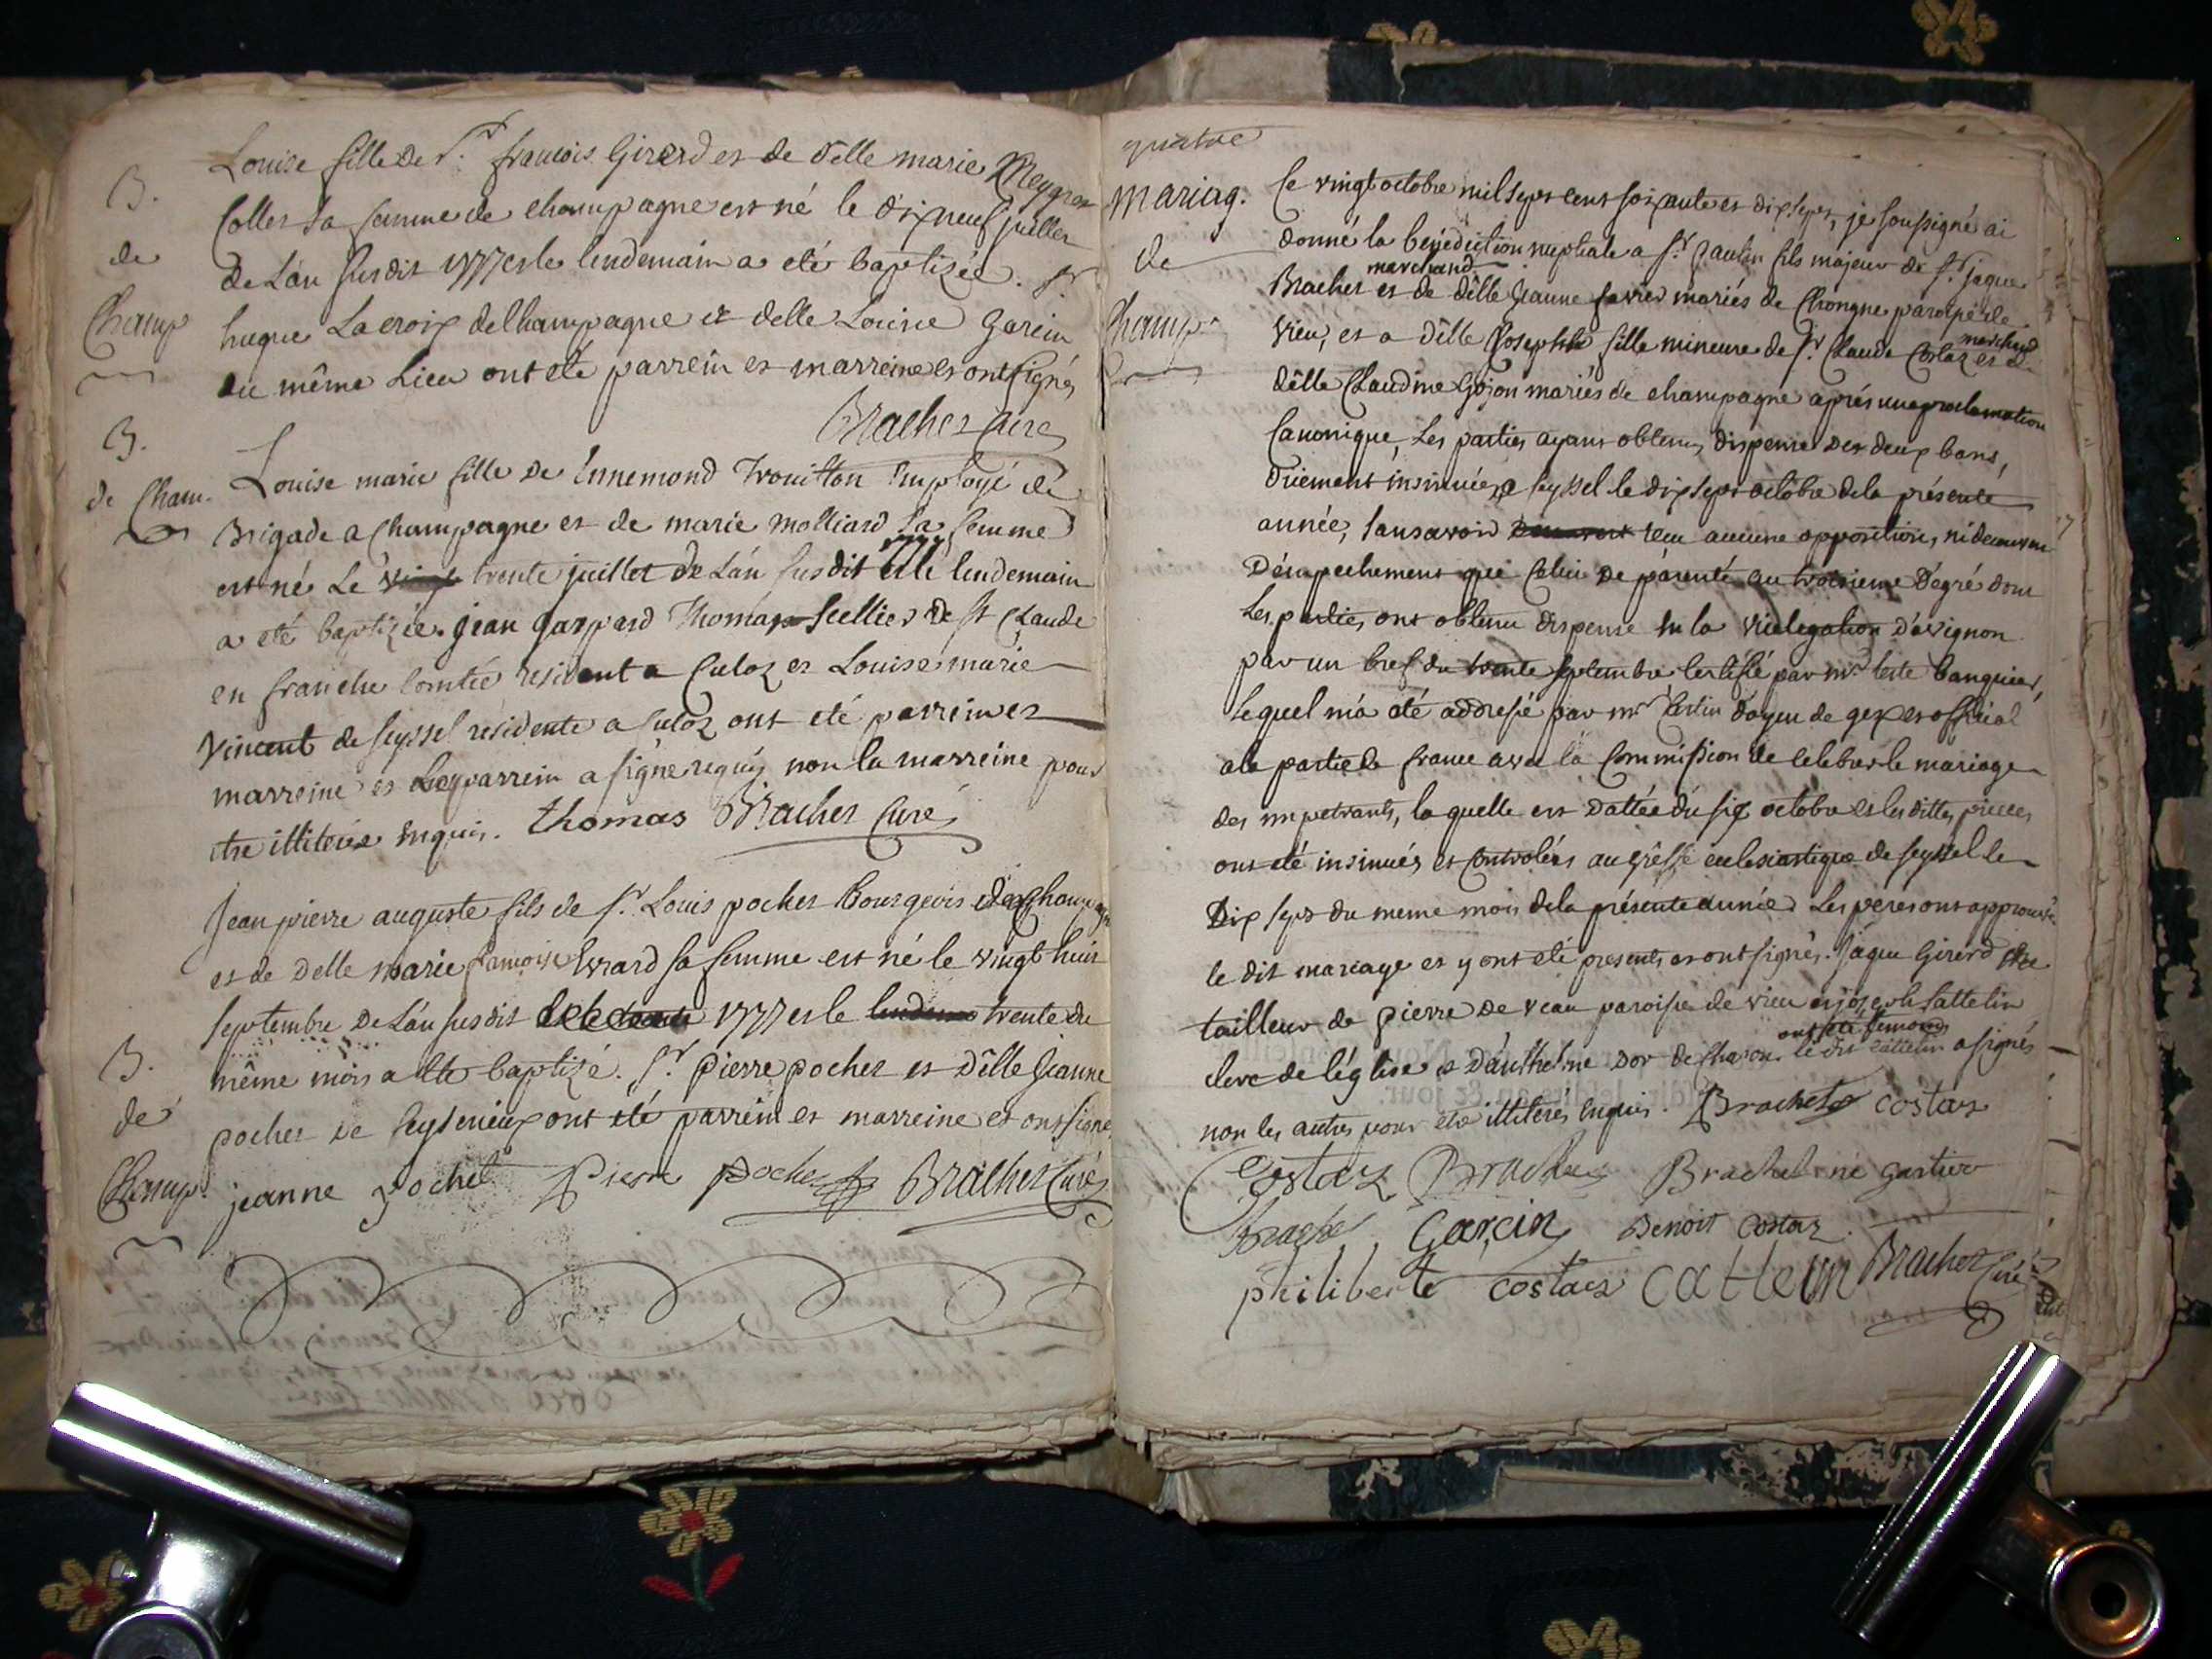 B.
de
Champ
Louise fille de Sr. francois Girerd et de delle marie Meygret
Collet sa femme de champagne est né le dixneuf juillet
de L'an susdit 1777 et le lendemain a eté baptizée. Sr
hugue Lacroix de Champagne et delle Louise Garcin
du même Lieu ont eté parrein et marreine et ont signés
Brachet Curé
B.
de Cham.
Louise marie fille de Ennemond Trouitton Employé de
Brigade a Champagne et de marie molliard sa femme
est né Le trente juillet de L'an susdit et le lendemain
a eté baptizée. jean gaspard Thomas Scellier de st Claude
en franche Comtée resident a Culoz et Louise marie
Vincent de seyssel résidente a Culoz ont eté parrein et
marreine et Le parrein a signé requis non la marreine pour
etre illiterée enquis. thomas Brachet Curé
Jean pierre auguste fils de Sr. Louis pochet bourgeois de Champagne
et de Delle marie francoise sa femme est né le vingt huit
septembre De L'an susdit 1777 et le trente du
B.
de
Champ.
même mois a ete baptizé. Sr. pierre pochet et Dêlle jeanne
pochet de Ceyserieux ont eté parrein et marreine et ont signe
jeanne pochet Pierre pochet Brachet Curé
quatre
mariag.
de
Champ.
Ce vingt octobre mil sept cent soixante et dix sept, je soussigné ai
donné la bénédiction nuptiale a Sr. paulin fils majeur de Sr. jaque
marchand
Brachet et de dêlle jeanne favre mariés de Chongne paroisse de
Vieu, et a dêlle Josephte fille mineure de Sr. Claude Costaz et d.
marchand
dêlle Claudine Gojon mariés de champagne aprés une proclamation
Canonique, Les parties ayant obtenu dispense des deux bans,
duement insinuée a seyssel le dix sept octôbre de la présente
année, sans avoir reçu aucune opposition, ni decouvert
D'empechement que Celui de parenté au troisieme Dégré dont
Les parties ont obtenu dispense en la Vicelegation d'avignon
par un bref du trente septembre Certifié par mr. teste banquier,
Lequel m'a eté addressé par mr doyen de gex et official
de la partie de france avec la Commission de celebrer le mariage
des impetrants, laquelle est Dattée du six octobre et lesdittes pieces
ont eté insinués et Controlées au Grêffe eccelesiastique de seyssel le
Dix sept du meme mois de la présente année Les peres ont approuvé
le dit mariage et y ont eté presents et ont signés. jaque Girerd
tailleur de pierre de veau paroisse de vieu et joseph Cattelin
ont été temoins
clerc de l'église et D'anthelme dor de Charon. Le dit cattelin a signés
non les autres pour etre illiterés enquis. Brachet costaz
Costaz Brachet Brachet né gartier
Brachet Garcin Benoit Costaz
philiberte costaz Cattelin Brachet Curé